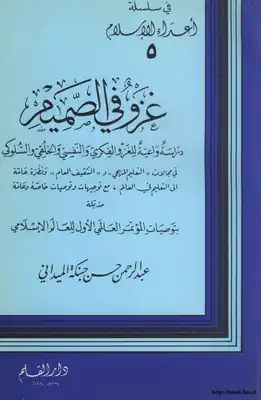 في سلسلة
أعداء الإسلام
٥
غزو في الصميم
دراسة واعية للغزو الفكري والنفسي والخلقي والسلوكي
في مجالات "التعليم المنهجي" و "التثقيف العام" ونظرة عامة
الى التعليم في العالم، مع توجيهات وتوصيات خاصة وعامة
مذيلة
بتوصيات المؤتمر العالمي الأول للعالم الإسلامي
عبد الرحمن حسن حبنكة الميداني
دار القلم